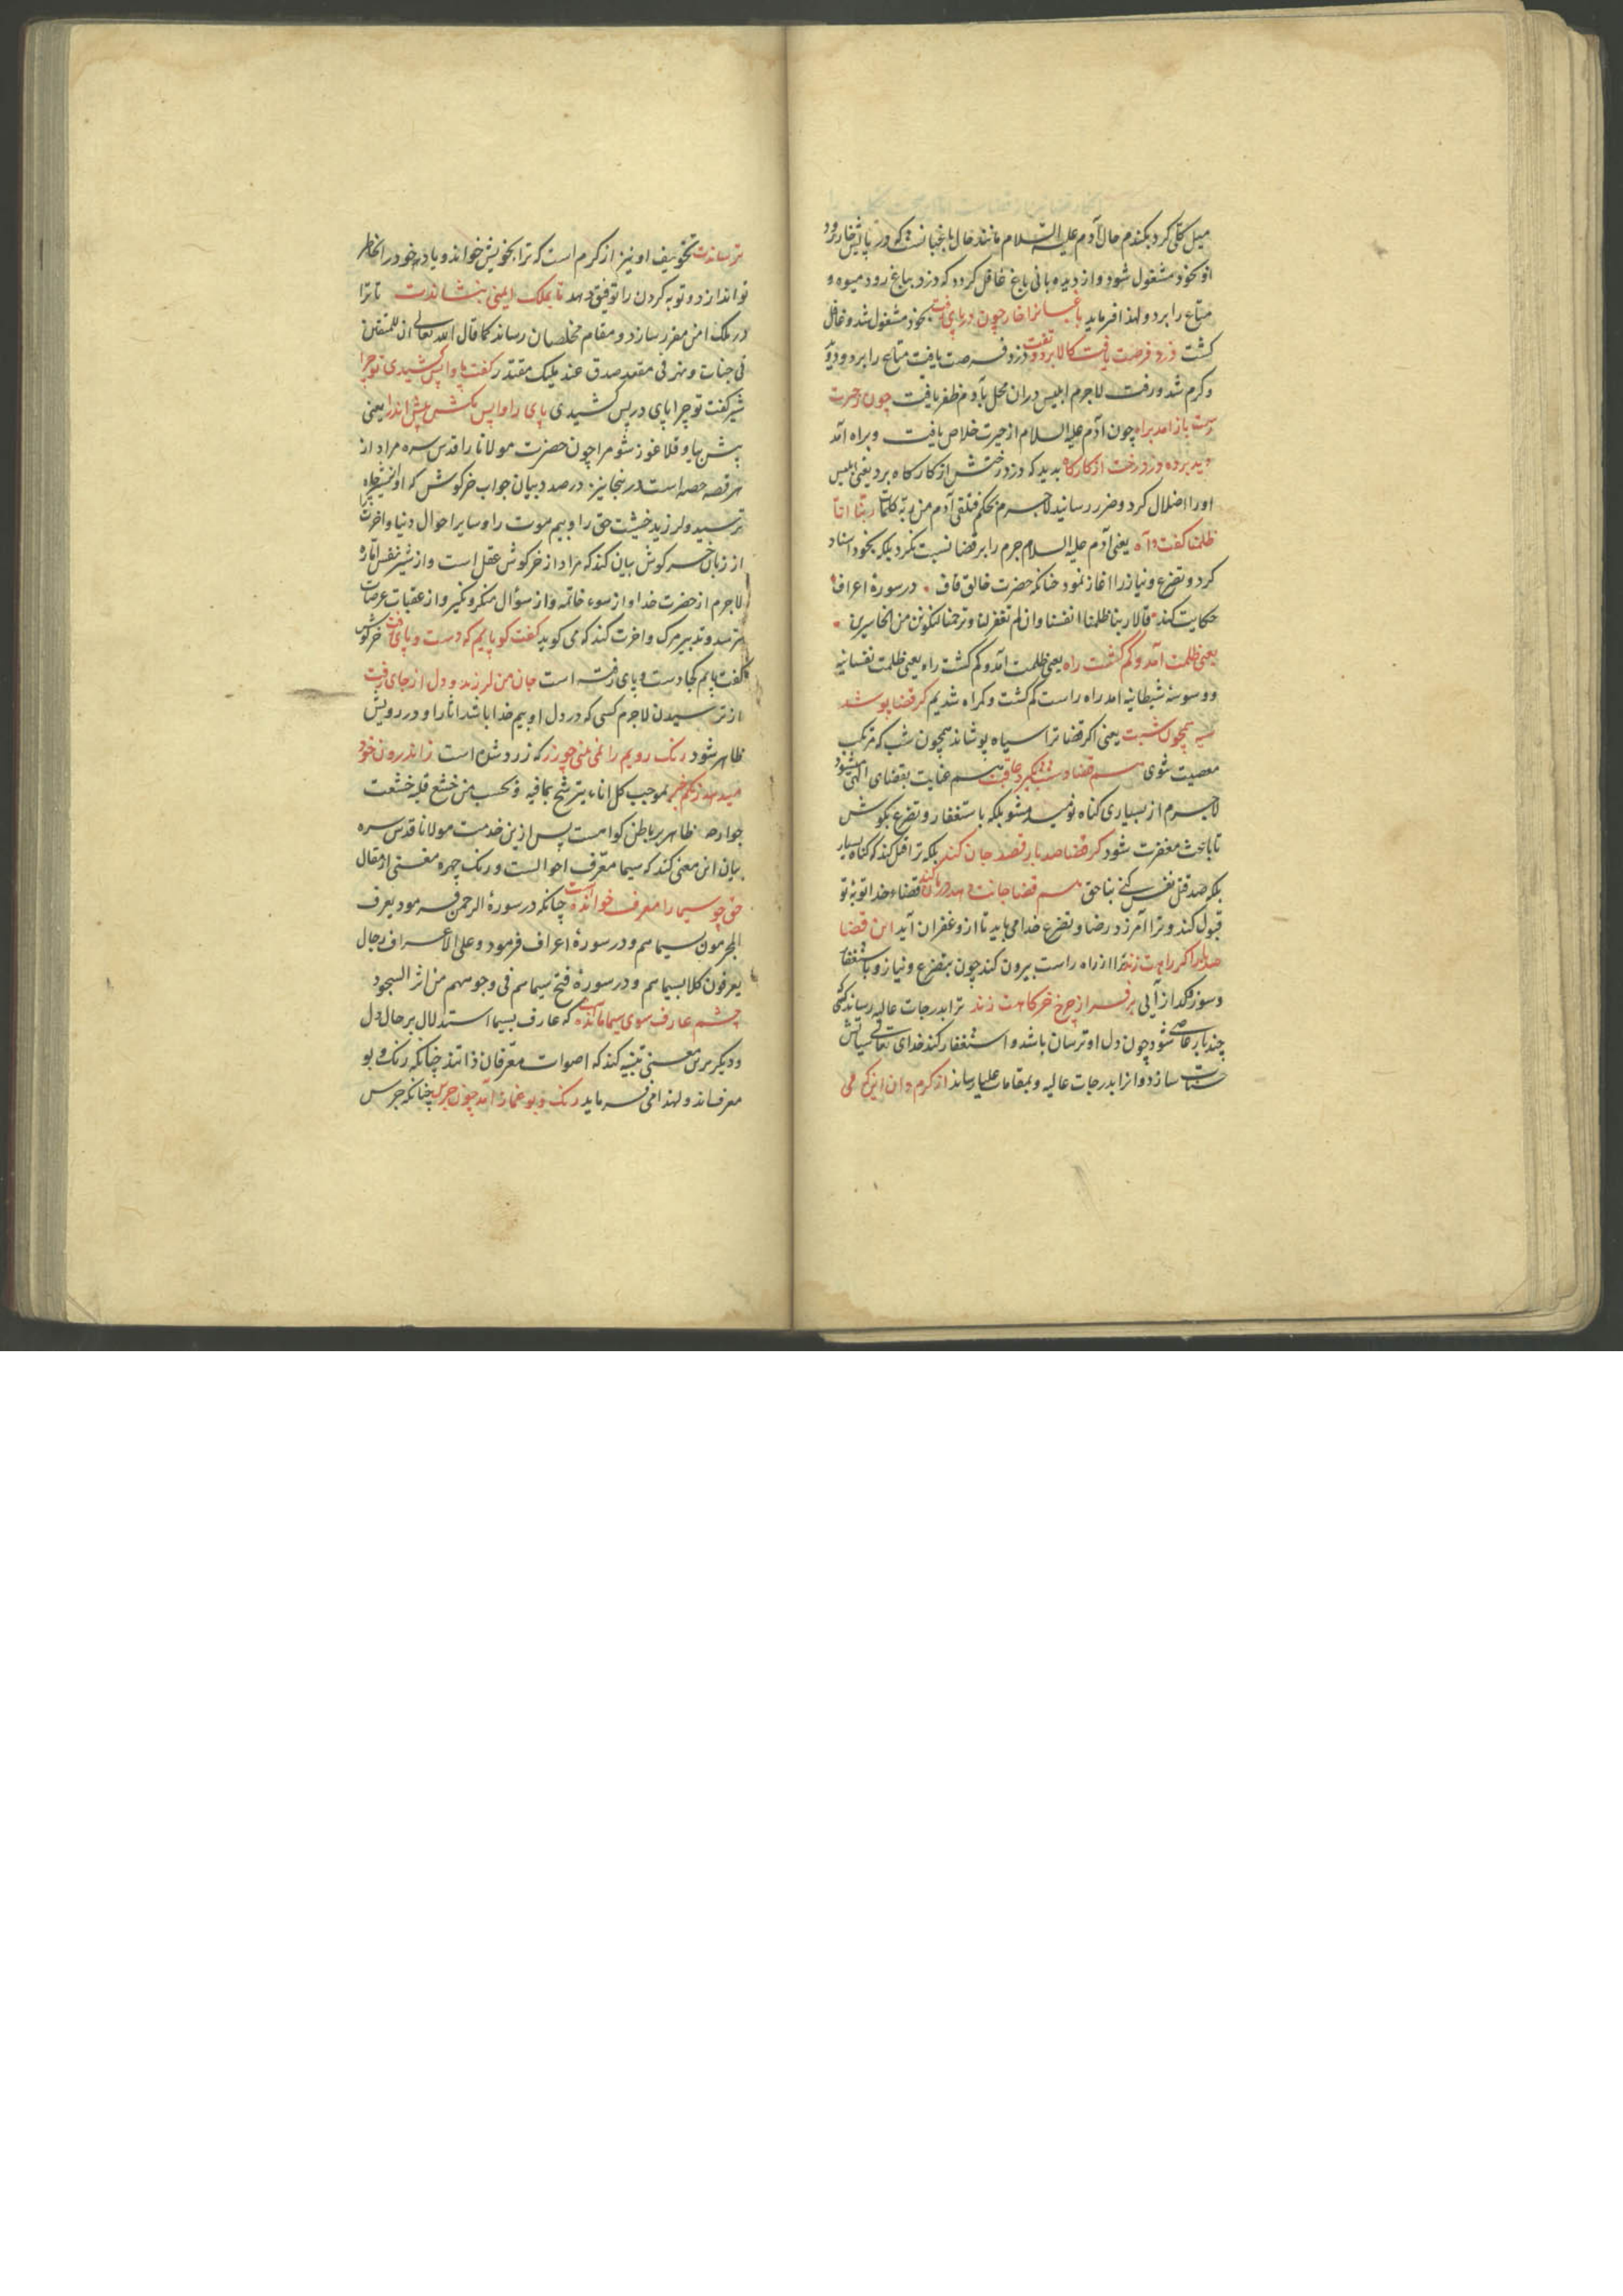 میل کلی کرد بکندم حال آدم علیه السلام مانند حال باغبانست که در پایش خار رود
او بخود مشغول شود و از دیده‌بانی باغ غافل کردد که دزد بباغ رود میوه و
متاع را برد و لهذا فرماید باغبانرا خار چون در پای رفت بخود مشغول شد و غافل
کشت دزد فرصت یافت کالا برد و تفت دزد فرصت یافت متاع را برد و زود
و کرم شد و رفت لاجرم ابلیس در آن محل بآدم ظفر یافت چون ز حیرت
رست باز آمد براه چون آدم علیه السلام از حیرت خلاص یافت و براه آمد
دید برده دزد رخت از کارکاه بدید که دزد رختش از کارکاه برد یعنی ابلیس
او را اضلال کرد و ضرر رسانید لاجرم بحکم فتلقی آدم من ربه کلمات ربنا انا
ظلمنا کفت و آه یعنی آدم علیه السلام جرم را بر قضا نسبت نکرد بلکه بخود اسناد
کرد و تضرع و نیاز را آغاز نمود چنانکه حضرت خالق قاف در سورهٔ اعراف
حکایت کند قالا ربنا ظلمنا انفسنا وان لم تغفر لنا وترحمنا لنکونن من الخاسرین
یعنی ظلمت آمد و کم کشت راه یعنی ظلمت آمد و کم کشت راه یعنی ظلمت نفسانیه
و وسوسهٔ شیطانیه امد راه راست کم کشت و کمراه شدیم کر قضا پوشد
سیه همچون شبت یعنی اکر قضا ترا سیاه پوشاند همچون شب که مرتکب
معصیت شوی هم قضا دستت بکیرد عاقبت هم عنایت بقضای الهی میشود
لاجرم از بسیاری کناه نومید مشو بلکه باستغفار و تضرع بکوش
تا باعث مغفرت شود کر قضا صد بار قصد جان کند بلکه ترا قتل کند که کناه بسیار
بلکه صد قتل نفس کنی بناحق هم قضا جانت دهد درمان کند قضاء خدا توبهٔ تو
قبول کند و ترا آمرزد رضا و تضرع خدا می‌باید تا از و غفران آید این قضا
صد بار اکر راهت زند ترا از راه راست بیرون کند چون بتضرع و نیاز و باستغفار
و سوز و کداز آیی بر فراز چرخ خرکاهت زند ترا بدرجات عالیه رساند کسی
چند بار عاصی شود چون دل او ترسان باشد و استغفار کند خدای تعالی سیئاتش
حسنات سازد و او را بدرجات عالیه و بمقامات علیا رساند از کرم دان این که می
ترساندت تخویف او نیز از کرم است که ترا بخویش خواند و یاد خود در خاطر
تو اندازد و توبه کردن را توفیق دهد تا بملک ایمنی بنشاندت تا ترا
در ملک امن مقرر سازد و مقام مخلصان رساند کما قال الله تعالی ان للمتقین
فی جنات ونهر فی مقعد صدق عند ملیک مقتدر کفت پا واپس کشیدی تو چرا
شیر کفت تو چرا پای در پس کشیدی پای را واپس مکش پیش اندرا یعنی
پیش بیا و قلاغوز شو مرا چون حضرت مولانا را قدس سره مراد از
هر قصه حصه است درینجا نیز در صدد بیان جواب خرکوش که او از شیر چرا
ترسید و لرزید خشیت حق را و بیم موت را و سایر احوال دنیا و اخرت
از زبان خرکوش بیان کند که مراد از خرکوش عقل است و از شیر نفس اماره
لاجرم از حضرت خدا و از سوء خاتمه و از سؤال منکر و نکیر و از عقبات عرصات
ترسد و تدبیر مرک و اخرت کند که می کوید کفت کو پایم که دست و پای رفت خرکوش
کفت پایم کجا دست و پای رفته است جان من لرزید و دل از جای رفت
از ترسیدن لاجرم کسی که در دل او بیم خدا باشد اثار او در رویش
ظاهر شود رنک رویم را نمی بینی چو زر که زرد شده است ز اندرون خود
میدهد رنکم خبر بموجب کل اناء یترشح بما فیه و بحسب من خشع قلبه خشعت
جوارحه ظاهر بر باطن کواهست پس ازین خدمت مولانا قدس سره
بیان این معنی کند که سیما معرف احوالست و رنک چهره مغنی از مقال
حق چو سیما را معرف خوانده است چنانکه در سورهٔ الرحمن فرمود یعرف
المجرمون بسیماهم و در سورهٔ اعراف فرمود وعلی الاعراف رجال
یعرفون کلا بسیماهم و در سورهٔ فتح سیماهم فی وجوههم من اثر السجود
چشم عارف سوی سیما مانده است که عارف بسیما استدلال بر حال دل
و دیکر برین معنی تنبیه کند که اصوات معرفان ذاتند چنانکه رنک و بو
معرفند و لهذا می فرماید رنک و بو غماز آمد چون جرس چنانکه جرس